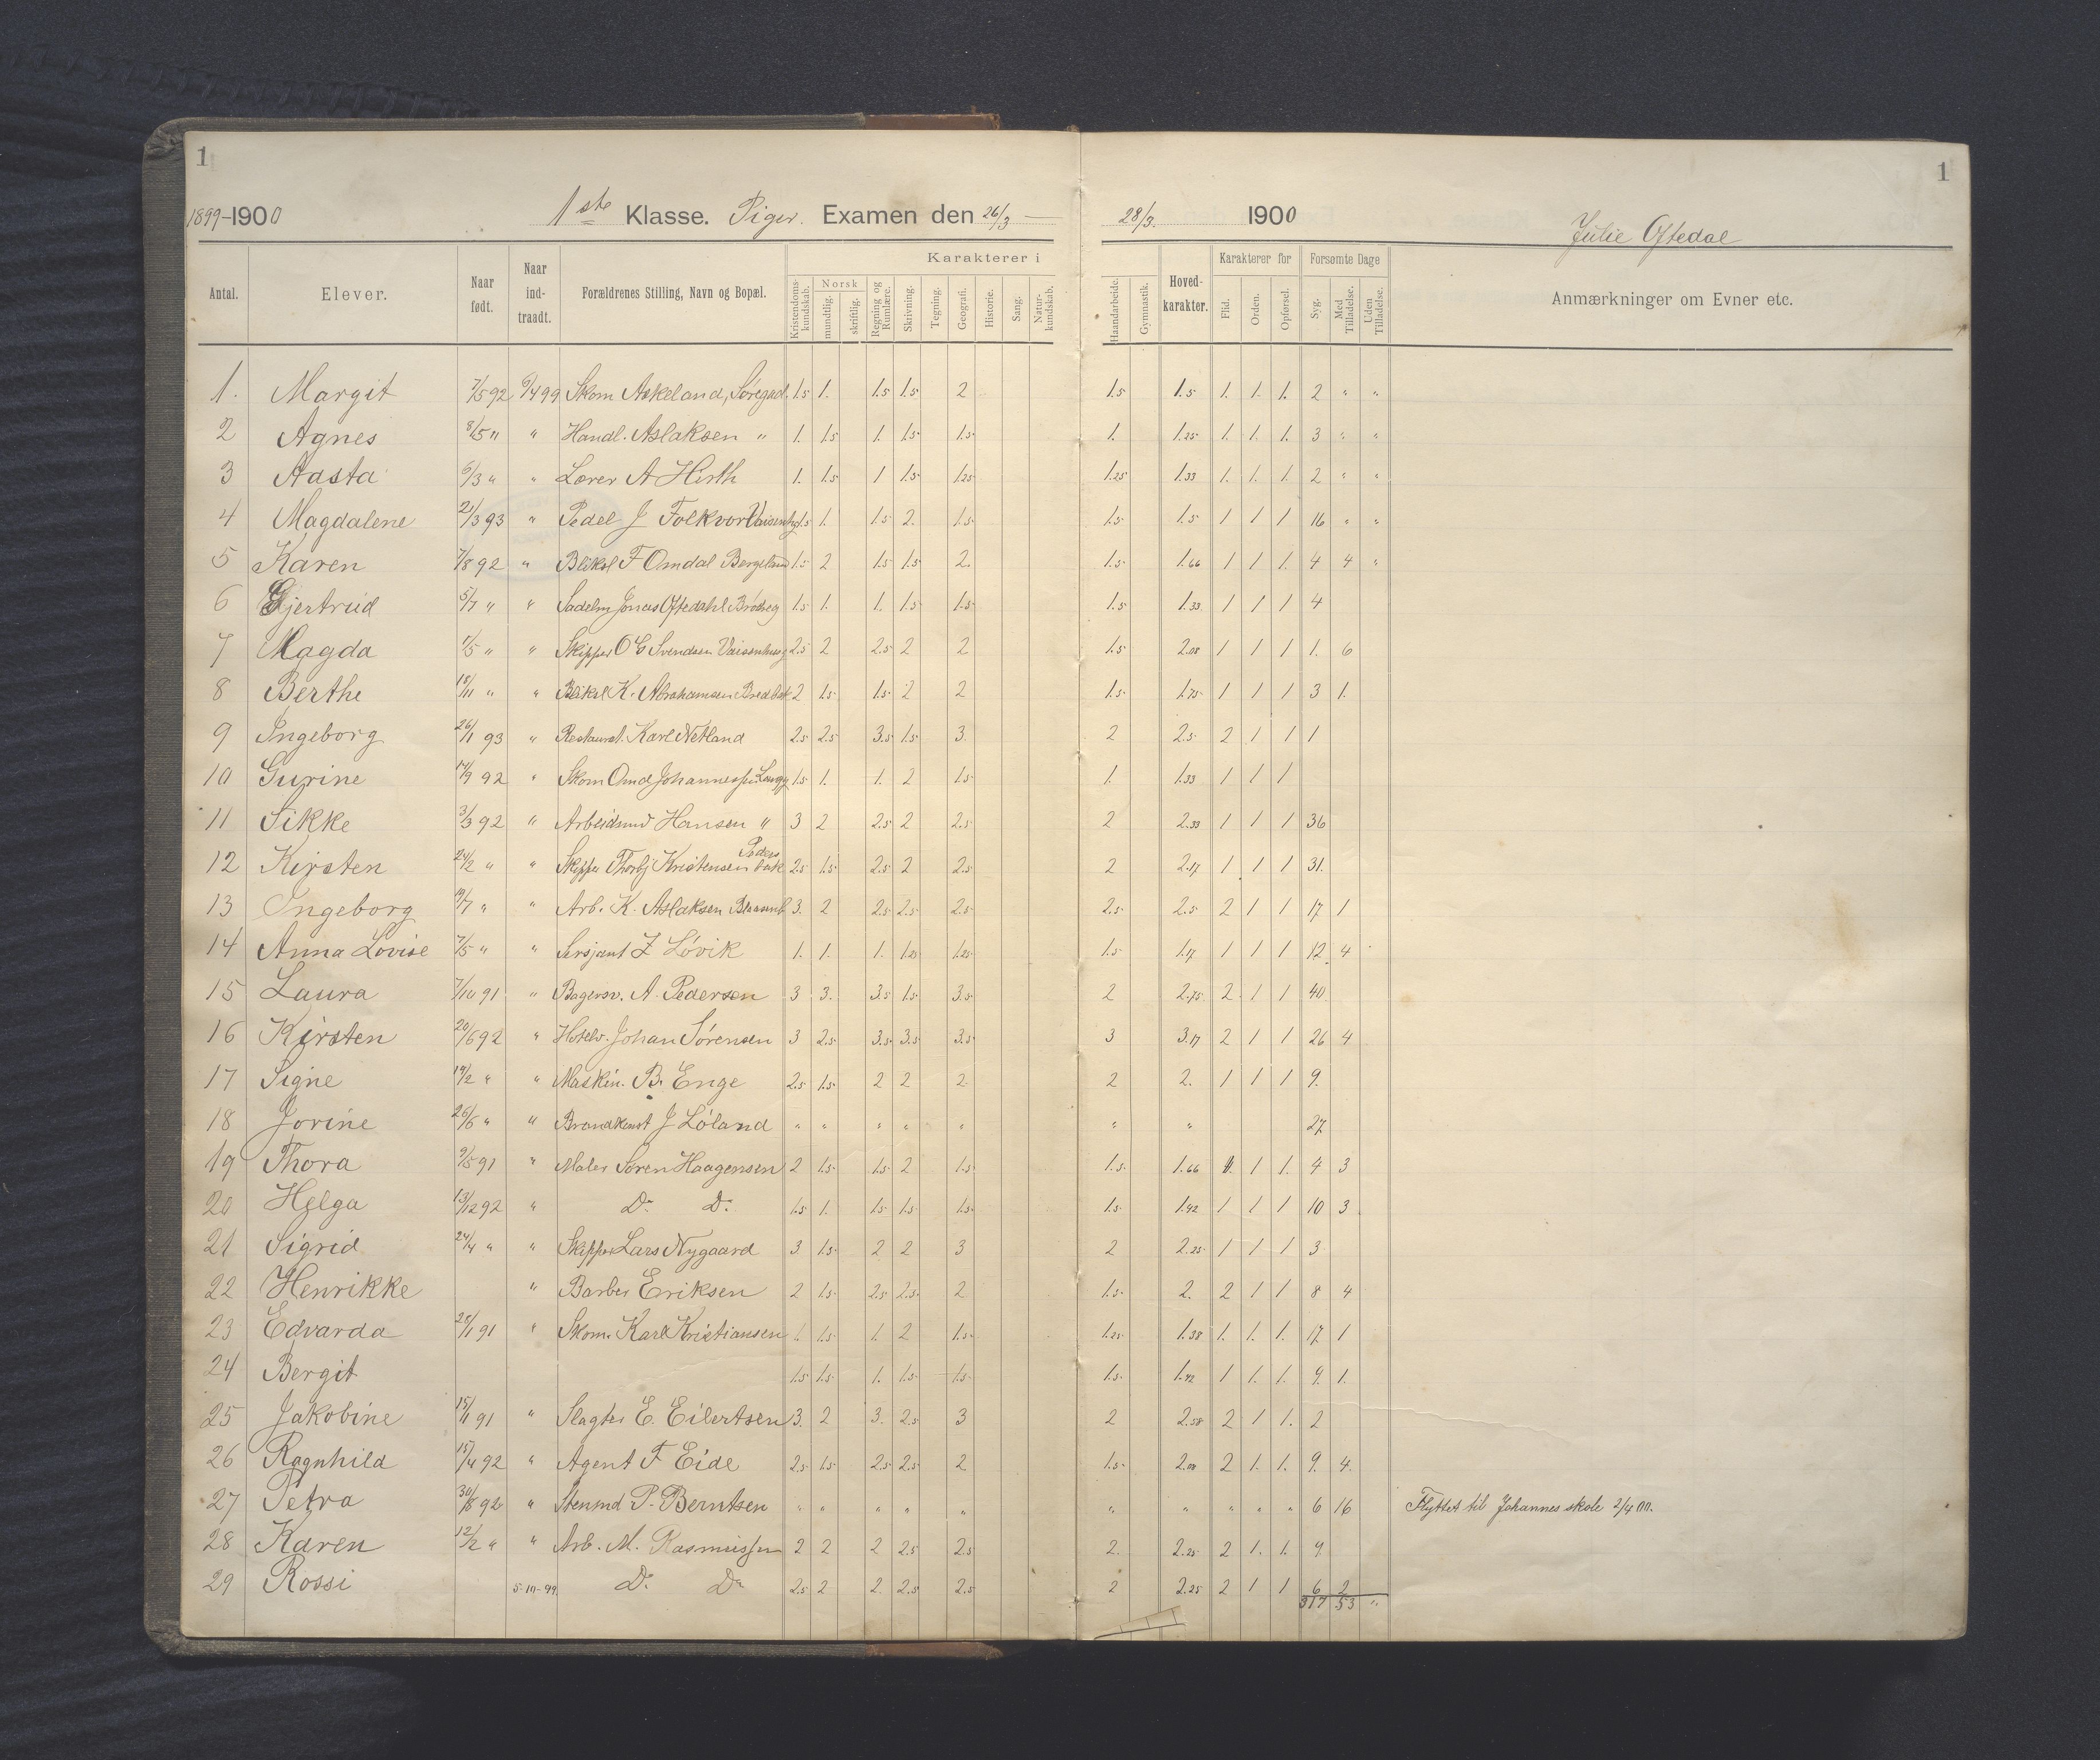 1 1
1899-1900 1ste Klasse. Piger. Examen den 26/3 — 28/3. 1900 Julie Oftedal
Antal. Elever. Naar født. Naar ind-traadt. Forældrenes Stilling, Navn og Bopæl. Karakterer i Kristendoms-kundskab. Norsk mundtlig. skriftlig. Regning og Rumlære. Skrivning. Tegning. Geografi. Historie. Sang. Natur-kundskab. Haandarbeide. Gymnastik. Hoved-karakter. Karakterer for Flid. Orden. Opførsel. Forsømte Dage Syg. Med Tilladelse. Uden Tilladelse. Anmærkninger om Evner etc.
1. Margit 7/5 92 /4 99 Skom Askeland, Søregad. 1.5 1. 1.5 1.5 2 1.5 1.5 1. 1. 1. 2 " "
2 Agnes 8/5 " " Handl. Aslaksen " 1. 1.5 1. 1.5 1.5 1. 1.25 1. 1. 1. 3 " "
3 Aasta 6/3 " " Lærer A Hirth 1. 1.5 1 1.5 1.25 1.25 1.33 1. 1. 1. 2 " "
4 Magdalene 21/3 93 " Pedel J Folkvor Vaisenhg 1.5 1. 1.5 2. 1.5 1.5 1.5 1 1 1 16 " "
5 Karen 7/8 92 " Bliksl F Omdal Bergeland 1.5 2 1.5 1.5 2. 1.5 1.66 1 1 1. 4 4 "
6 Gjertrud 5/7 " " Sadelm Jonas Oftedahl Brødreg 1.5 1. 1. 1.5 1.5 1.5 1.33 1 1 1 4
7 Magda 1/5 " " Skipper O G Svendsen Vaisenhusg 2.5 2 2.5 2 2 1.5 2.08 1 1 1 1. 6
8 Berthe 18/11 " " Bliksl K. Abrahamsen Bredbak 2 1.5 1.5 2 2 1.5 1.75 1 1 1 3 1.
9 Ingeborg 26/1 93 " Restaurat. Karl Netland 2.5 2.5 3.5 1.5 3. 2 2.5 2 1 1 1
10 Gurine 14/9 92 " Skom Omd Johannessen Langg 1.5 1. 1. 2 1.5 1. 1.33 1 1 1
11 Sikke 3/3 92 " Arbeidsmd Hansen " 3 2 2.5 2 2.5 2 2.33 1 1 1 36
12 Kirsten 24/2 " " Skipper Thorbj Kristensen Pedersbak 2.5 1.5 2.5 2 2.5 2 2.17 1 1 1 31.
13 Ingeborg 19/7 " " Arb. K. Aslaksen Blaasenb 3. 2 2.5 2.5 2.5 2.5 2.5 2 1 1 17 1
14 Anna Lovise 7/5 " " Sersjant Z Løvik 1. 1. 1. 1.25 1.25 1.5 1.17 1 1 1 12 4
15 Laura 7/10 91 " Bagersv. A. Pedersen 3 3. 3.5 1.5 3.5 2 2.75 2 1 1 40
16 Kirsten 20/6 92 " Hotelv. Johan Sørensen 3 2.5 3.5 3.5 3.5 3 3.17 2 1 1 26 4
17 Signe 19/2 " " Maskin. B. Enge 2.5 1.5 2 2 2 2 2. 1 1 1 9.
18 Jorine 26/6 " " Brandkonst J Løland " " " " " " " 27
19 Thora 9/5 91 " Maler Søren Haagensen 2 1.5 1.5 2 1.5 1.5 1.66 1. 1 1. 4 3
20 Helga 13/12 92 " Do Do 1.5 1. 1.5 1.5 1.5 1.5 1.42 1 1 1 10 3
21 Sigrid 24/4 " " Skipper Lars Nygaard 3 1.5 2 2 3 2 2.25 1 1 1 3
22 Henrikke " Barber Eriksen 2 1.5 2.5 2.5 2 1.5 2. 2 1 1 8 4
23 Edvarda 28/1 91 " Skom. Karl Kristiansen 1. 1.5 1. 2 1.5 1.25 1.38 1. 1. 1. 17 1
24 Bergit 1.5 1.5 1. 1.5 1.5 1.5 1.42 1 1. 1. 9. 1.
25 Jakobine 15/1 91 " Slagter E. Eilertsen 3. 2 3. 2.5 3 2 2.58 2 1 1. 2
26 Ragnhild 15/4 92 " Agent F Eide 2.5 1.5 2.5 2.5 2 1.5 2.08 2 1. 1. 9. 4.
27 Petra 30/8 92 " Stenmd P. Berntsen " " " " " " " " " " 6 16 Flyttet til Johannes skole 2/4 00.
28 Karen 12/2 " " Arb. M. Rasmussen 2 2 2 2.5 2.5 2. 2.25 2 1. 1. 9.
29 Rossi 5-10-99. Do Do 2.5 2 2. 2.5 2.5 2 2.25 2 1 1 6 2
317 53 "